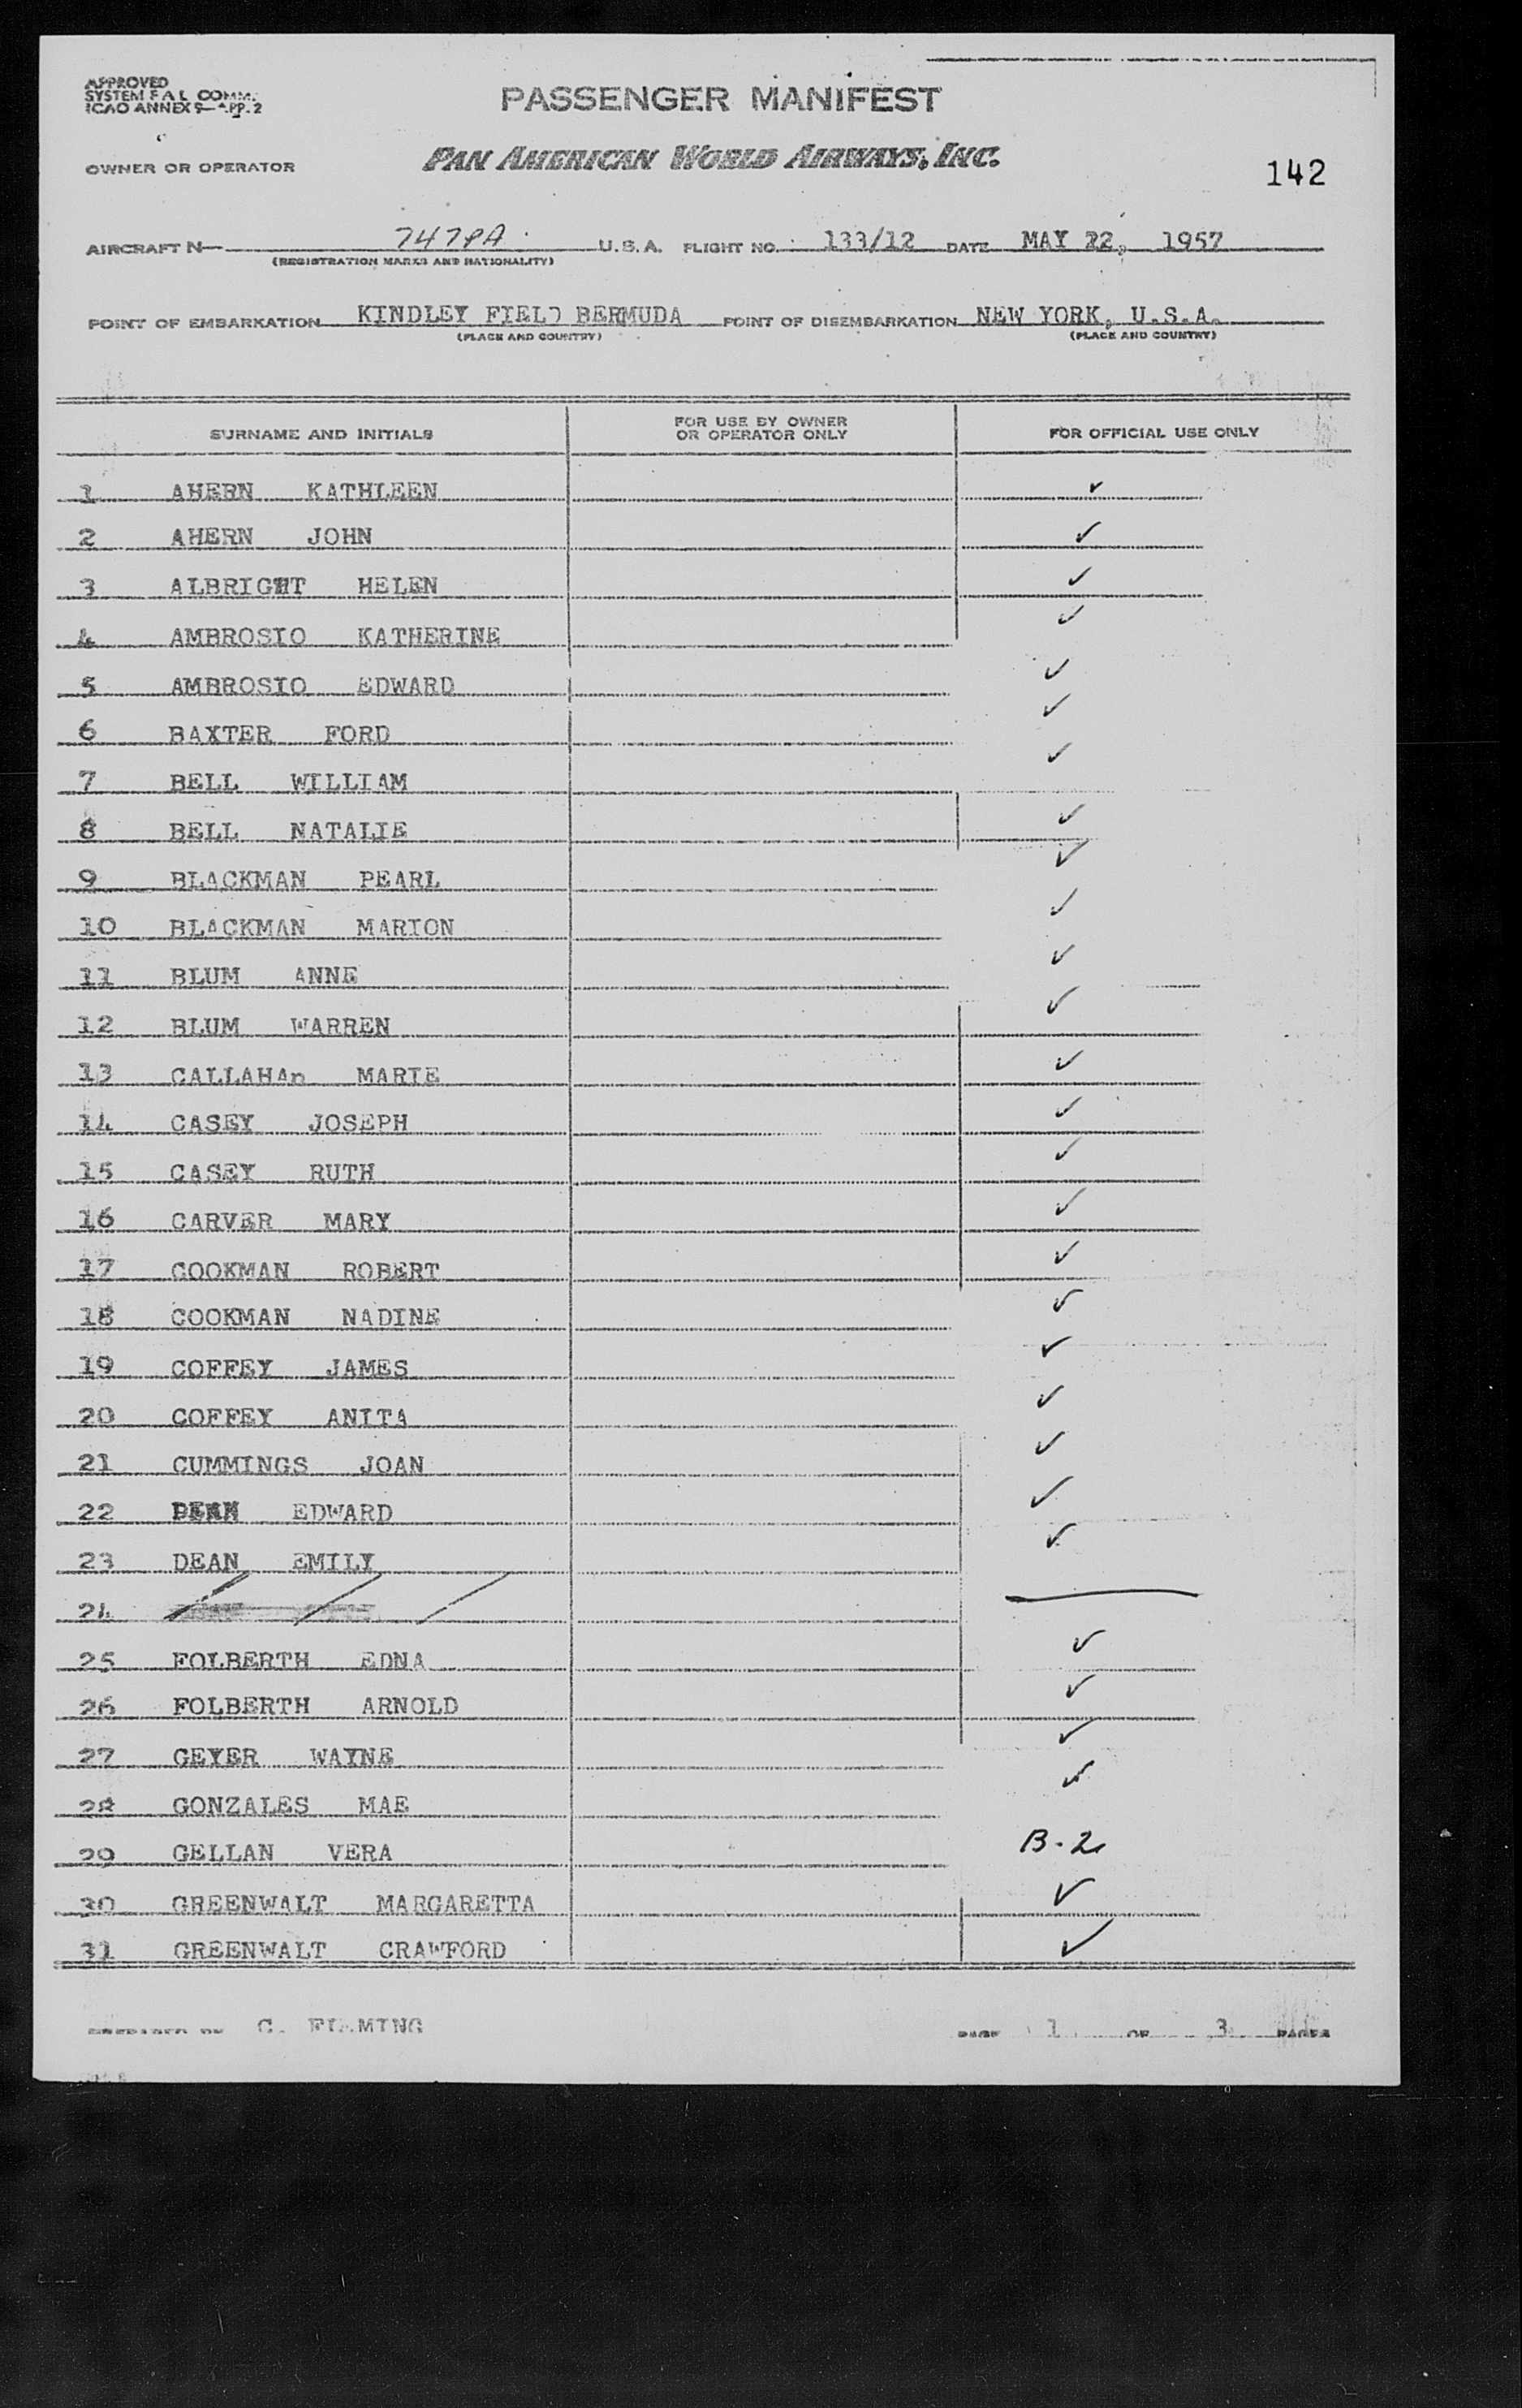 APPROVED
SYSTEM F A L COMM.
ICAO ANNEX 9—APP. 2
PASSENGER MANIFEST
OWNER OR OPERATOR PAN AMERICAN WORLD AIRWAYS, INC.
142
AIRCRAFT N— 747PA U.S.A. FLIGHT NO. 133/12 DATE MAY 22, 1957
(REGISTRATION MARKS AND NATIONALITY)
POINT OF EMBARKATION KINDLEY FIELD BERMUDA POINT OF DISEMBARKATION NEW YORK, U.S.A.
(PLACE AND COUNTRY) (PLACE AND COUNTRY)
SURNAME AND INITIALS FOR USE BY OWNER OR OPERATOR ONLY FOR OFFICIAL USE ONLY
1 AHERN KATHLEEN ✓
2 AHERN JOHN ✓
3 ALBRIGHT HELEN ✓
4 AMBROSIO KATHERINE ✓
5 AMBROSIO EDWARD ✓
6 BAXTER FORD ✓
7 BELL WILLIAM ✓
8 BELL NATALIE ✓
9 BLACKMAN PEARL ✓
10 BLACKMAN MARION ✓
11 BLUM ANNE ✓
12 BLUM WARREN ✓
13 CALLAHAn MARIE ✓
14 CASEY JOSEPH ✓
15 CASEY RUTH ✓
16 CARVER MARY ✓
17 COOKMAN ROBERT ✓
18 COOKMAN NADINE ✓
19 COFFEY JAMES ✓
20 COFFEY ANITA ✓
21 CUMMINGS JOAN ✓
22 EDWARD ✓
23 DEAN EMILY ✓
24
25 FOLBERTH EDNA ✓
26 FOLBERTH ARNOLD ✓
27 GEYER WAYNE ✓
28 GONZALES MAE ✓
29 GELLAN VERA B-2
30 GREENWALT MARGARETTA ✓
31 GREENWALT CRAWFORD ✓
PREPARED BY C. FLEMING PAGE 1 OF 3 PAGES